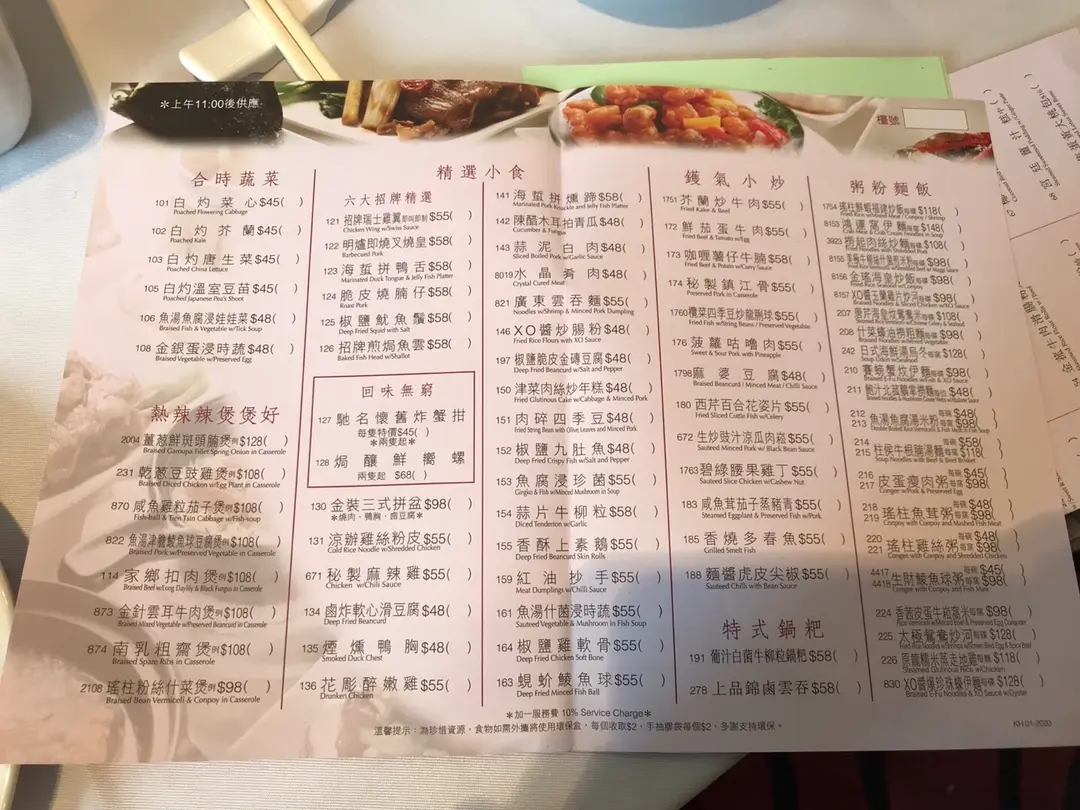 ＊上午11:00後供應
檯號
合時蔬菜
101 白灼菜心$45( )
Poached Flowering Cabbage
102 白灼芥蘭$45( )
Poached Kale
103 白灼唐生菜$45( )
Poached China Lettuce
105 白灼溫室豆苗$45( )
Poached Japanese Pea's Shoot
106 魚湯魚腐浸娃娃菜$48( )
Braised Fish & Vegetable w/Tick Soup
108 金銀蛋浸時蔬$48( )
Braised Vegetable w/Preserved Egg
熱辣辣煲煲好
2004 薑葱鮮斑頭腩煲例$128( )
Braised Garnupa Fillet Spring Onion in Casserole
231 乾葱豆豉雞煲例$108( )
Braised Diced Chicken w/Egg Plant in Casserole
870 咸魚雞粒茄子煲例$108( )
Fish-ball & Tien Tsin Cabbage w/Fish-soup
822 魚湯津膽鯪魚球豆腐煲例$108( )
Braised Pork w/Preserved Vegetable in Casserole
114 家鄉扣肉煲例$108( )
Braised Beef w/Long Dayily & Black Fungus in Casserole
873 金針雲耳牛肉煲例$108( )
Braised Mixed Vegetable w/Preserved Beancurd in Casserole
874 南乳粗齋煲例$108( )
Braised Spare Ribs in Casserole
2108 瑤柱粉絲什菜煲例$98( )
Braised Bean Vermicell & Conpoy in Casserole
精選小食
六大招牌精選
121 招牌瑞士雞翼即叫即制$55( )
Chicken Wing w/Swiss Sauce
122 明爐即燒叉燒皇$58( )
Barbecued Pork
123 海蜇拼鴨舌$58( )
Marinated Duck Tongue & Jelly Fish Platter
124 脆皮燒腩仔$58( )
Roast Pork
125 椒鹽魷魚鬚$58( )
Deep Fried Squid with Salt
126 招牌煎焗魚雲$58( )
Baked Fish Head w/Shallot
回味無窮
127 馳名懷舊炸蟹拑
每隻特價$45( )
＊兩隻起＊
128 焗釀鮮嚮螺
兩隻起 $68( )
130 金裝三式拼盆$98( )
＊燒肉、鴨胸、鹵豆腐＊
131 涼辦雞絲粉皮$55( )
Cold Rice Noodle w/Shredded Chicken
671 秘製麻辣雞$55( )
Chicken w/Chili Sauce
134 鹵炸軟心滑豆腐$48( )
Deep Fried Beancurd
135 煙燻鴨胸$48( )
Smoked Duck Chest
136 花彫醉嫩雞$55( )
Drunken Chicken
141 海蜇拼燻蹄$58( )
Marinated Pork Knuckle and Jelly Fish Platter
142 陳醋木耳拍青瓜$48( )
Cucumber & Fungus
143 蒜泥白肉$48( )
Sliced Boiled Pork w/Garlic Sauce
8019 水晶肴肉$48( )
Crystal Cured Meat
821 廣東雲吞麵$55( )
Noodles w/Shrimp & Minced Pork Dumpling
146 XO醬炒腸粉$48( )
Fried Rice Flours with XO Sauce
197 椒鹽脆皮金磚豆腐$48( )
Deep Fried Beancurd w/Salt and Pepper
150 津菜肉絲炒年糕$48( )
Fried Glutinous Cake w/Cabbage & Minced Pork
151 肉碎四季豆$48( )
Fried String Bean with Olive Leaves and Minced Pork
152 椒鹽九肚魚$48( )
Deep Fried Crispy Fish w/Salt and Pepper
153 魚腐浸珍菌$55( )
Gingko & Fish w/Minced Mushroom in Soup
154 蒜片牛柳粒$58( )
Diced Tenderion w/Garlic
155 香酥上素鵝$55( )
Deep Fried Beancurd Skin Rolls
159 紅油抄手$55( )
Meat Dumplings w/Chilli Sauce
161 魚湯什菌浸時蔬$55( )
Sauteed Vegetable & Mushroom in Fish Soup
164 椒鹽雞軟骨$55( )
Deep Fried Chicken Soft Bone
163 蜆蚧鯪魚球$55( )
Deep Fried Minced Fish Ball
鑊氣小炒
1751 芥蘭炒牛肉$55( )
Fried Kale & Beef
172 鮮茄蛋牛肉$55( )
Fried Beef & Tomato w/Egg
173 咖喱薯仔牛腩$58( )
Fried Beef & Potato w/Curry Sauce
174 秘製鎮江骨$55( )
Preserved Pork in Casserole
1760 欖菜四季豆炒龍脷球$55( )
Fried Fish w/String Beans / Preserved Vegetable
176 菠蘿咕嚕肉$55( )
Sweet & Sour Pork with Pineapple
1798 麻婆豆腐$48( )
Braised Beancurd / Minced Meat / Chilli Sauce
180 西芹百合花姿片$55( )
Fried Sliced Cuttle Fish w/Celery
672 生炒豉汁涼瓜肉崧$55( )
Sauteed Minced Pork w/Black Bean Sauce
1763 碧綠腰果雞丁$55( )
Sauteed Slice Chicken w/Cashew Nut
183 咸魚茸茄子蒸豬青$55( )
Steamed Eggplant & Preserved Fish w/Pork
185 香燒多春魚$55( )
Grilled Smelt Fish
188 麵醬虎皮尖椒$55( )
Sauteed Chilli with Bean Sauce
特式鍋粑
191 葡汁白菌牛柳粒鍋粑$58( )
278 上品錦鹵雲吞$58( )
粥粉麵飯
1754 瑤柱鮮蝦福建炒飯每碟$118( )
8153 鴻運窩伊麵$148( )
3923 棚起肉絲炒麵每碟$108( )
8155 $98( )
8156 金瑤海皇炒飯每碟$98( )
8157 XO醬玉蘭雞片炒河每碟$98( )
207 $108( )
208 什菜蠔油撈粗麵每碟$98( )
242 日式海鮮湯烏冬每窩$128( )
Soup Udon w/Seafood
210 賽螃蟹炆伊麵每碟$98( )
Braised E-Fu Noodles w/Fish & XO Sauce
211 鮑汁北菇鵝掌撈麵每位$48( )
212 每碗$48( )
213 魚湯魚腐湯米粉每窩$98( )
214 每碗$58( )
215 柱侯牛根腩湯麵每窩$118( )
Soup Noodles with Beef & Beef Brisket
216 每碗$45( )
217 皮蛋瘦肉粥每窩$98( )
Congee w/Pork & Preserved Egg
218 每碗$48( )
219 瑤柱魚茸粥每窩$98( )
Congee with Conpoy and Mashed Fish Meat
220 每碗$48( )
221 瑤柱雞絲粥每窩$98( )
Congee with Conpoy and Shredded Chicken
4417 每碗$45( )
4418 生財鯪魚球粥每窩$98( )
Congee with Conpoy and Fish Mare
224 香茜皮蛋牛崧窩米每窩$98( )
225 太極鴛鴦炒河每碟$128( )
226 原籠糯米蒸走地雞每籠$118( )
Steamed Glutinous Rice w/Chicken
830 XO醬爆珍珠蠔伊麵每碟$128( )
Braised E-Fu Noodles & XO Sauce w/Oyster
＊加一服務費 10% Service Charge＊
溫馨提示：為珍惜資源，食物如需外攜將使用環保盒，每個收取$2，手抽膠袋每個$2，多謝支持環保。
KH.01-2020